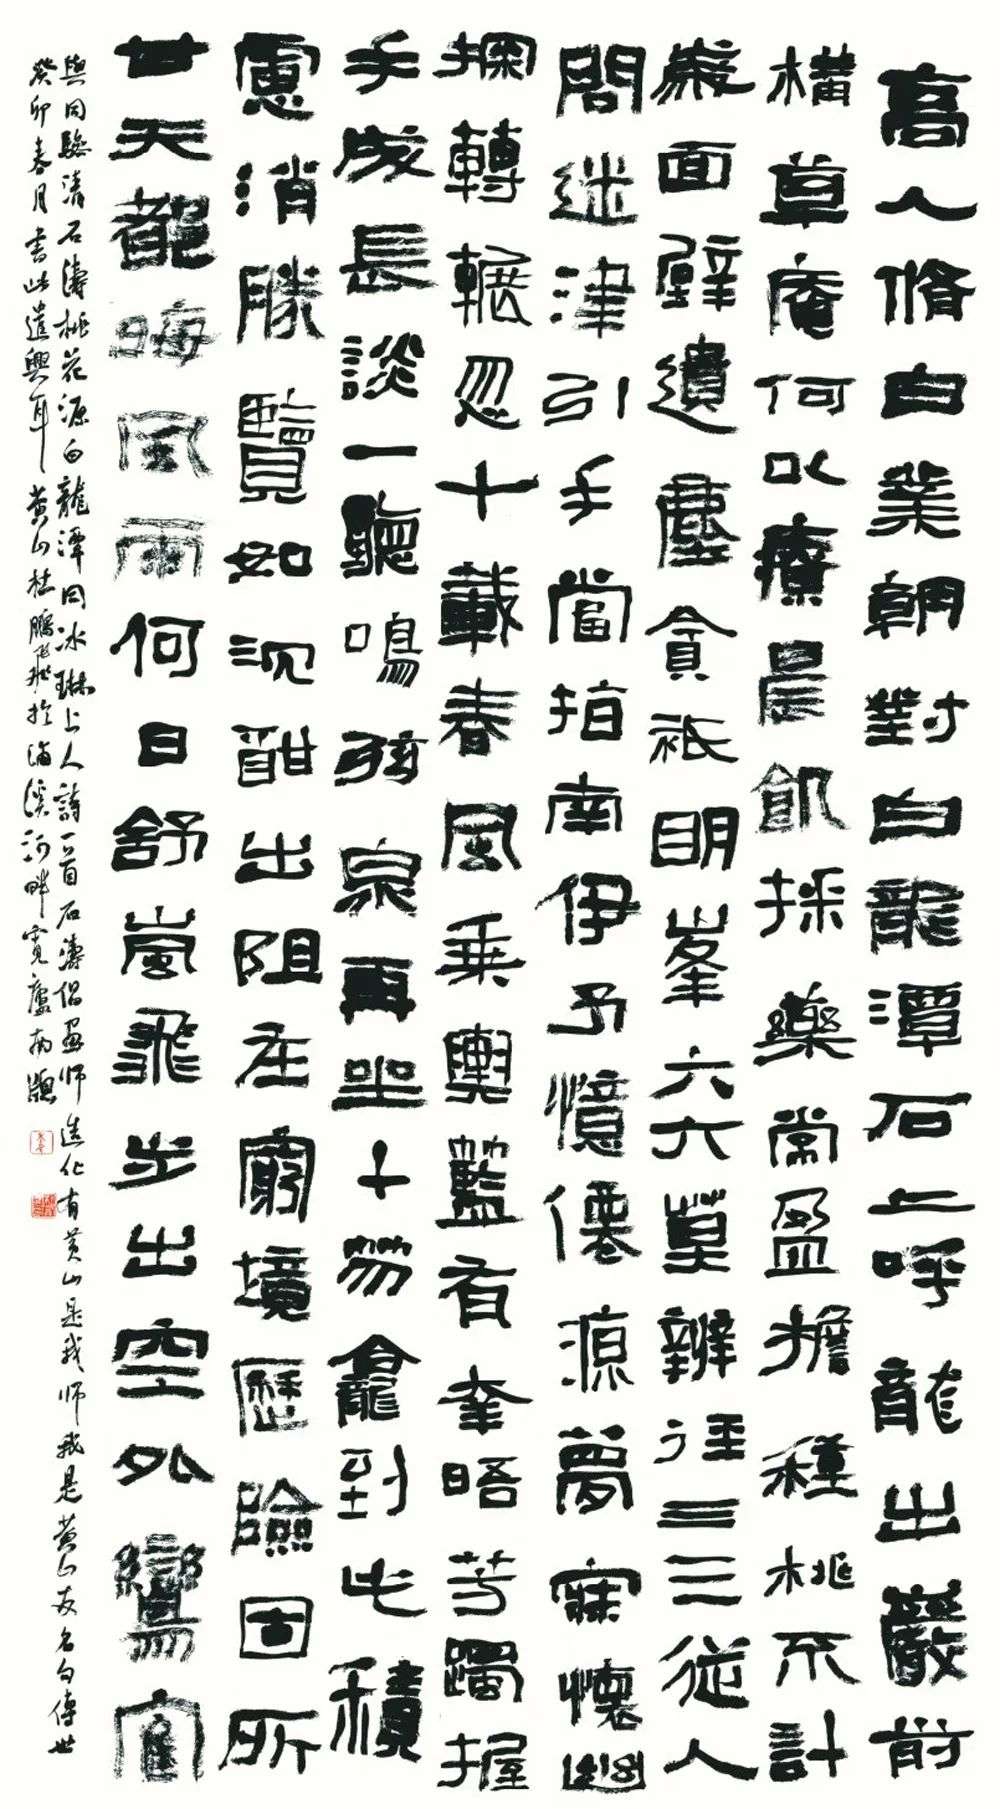 高人脩白業朝對白龍潭石上呼龍出巖前
橫草庵何以療晨飢採藥常盈擔種桃不計
歲面壁遺塵貪祇明峯六六莫辨徑三三從人
問迷津引手當指南伊予憶僊源夢寐懷幽
探轉輾忽十載春風乘輿籃有幸晤芳躅握
手成長談一聽鳴弦泉再坐十笏龕到此積
慮消勝覽如沉酣出阻在窮境歷險固所
甘天都晦風雨何日舒嵐飛步出空外鸞寉
清石濤桃花源白龍潭同冰琳上人詩一首石濤倡畫師造化有黃山是我師我是黃山友名句傳世
癸卯春月書此遣興耳黃山杜鵬飛於浦溪河畔寬廬南牕